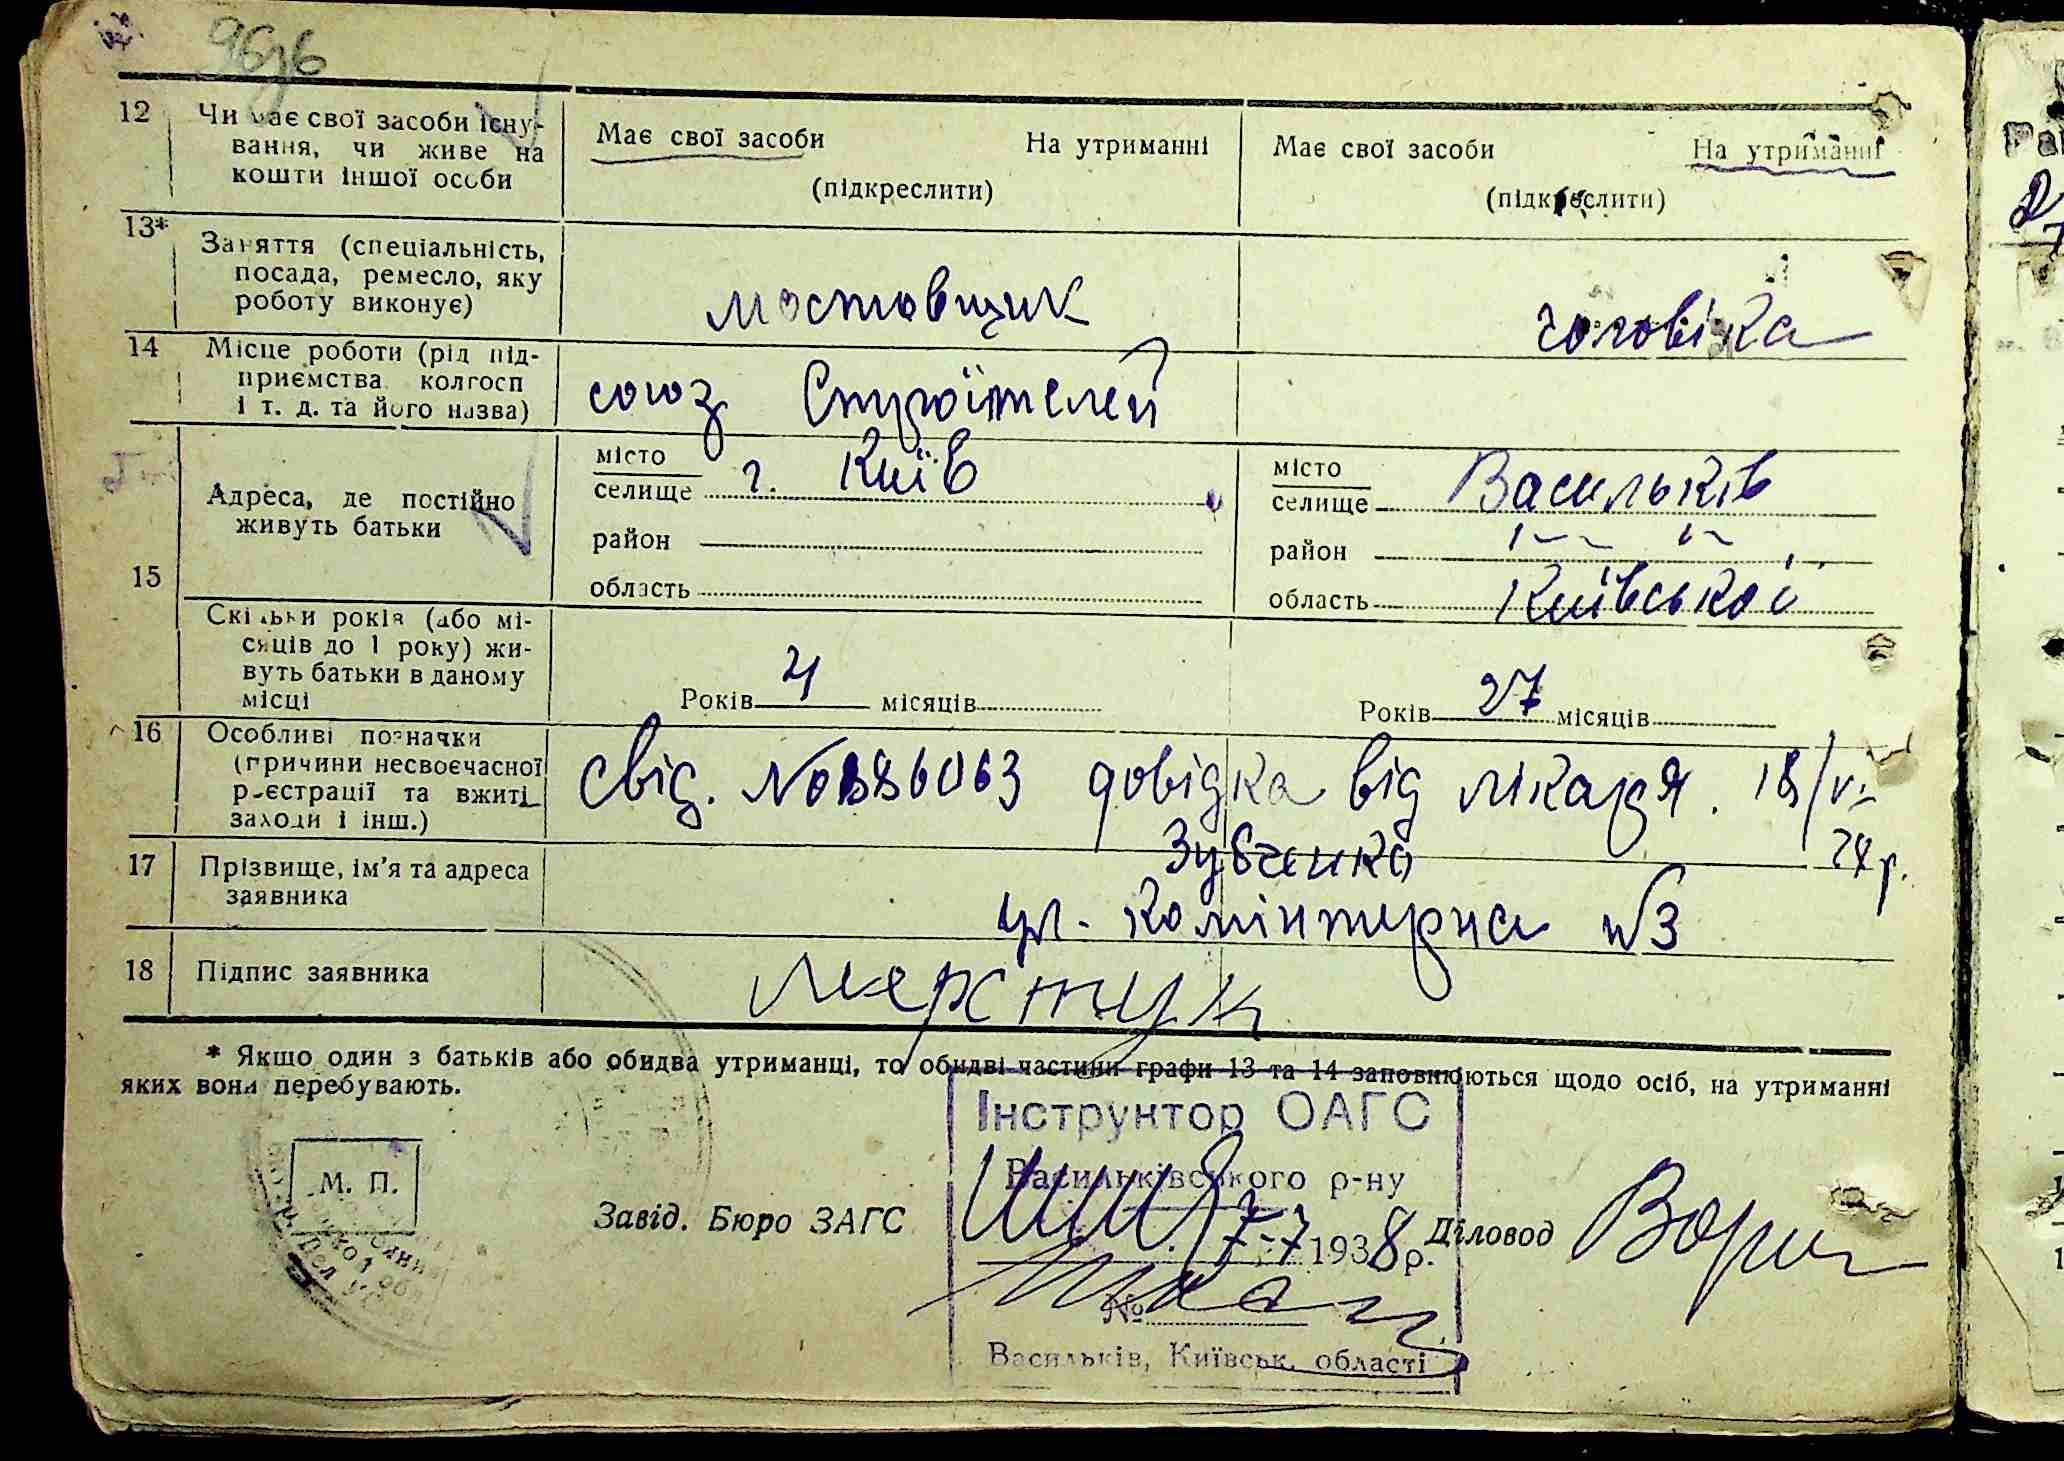 12 Чи має свої засоби існу-
вання, чи живе на
кошти іншої особи
Має свої засоби На утриманні
(підкреслити)
Має свої засоби На утриманні
(підкреслити)
13* Заняття (спеціальність,
посада, ремесло, яку
роботу виконує)
мостовщик
чоловіка
14 Місце роботи (рід під-
приємства колгосп
і т. д. та його назва)
союз Строїтелей
15 Адреса, де постійно
живуть батьки
місто
селище г. Київ
район
область
місто
селище Васильків
район
область Київської
Скільки років (або мі-
сяців до 1 року) жи-
вуть батьки в даному
місці
Років 4 місяців
Років 27 місяців
16 Особливі позначки
(причини несвоєчасної
реєстрації та вжиті
заходи і інш.)
свід. № 886063 довідка від лікаря. 18/VI
Зубченко
17 Прізвище, ім'я та адреса
заявника
ул. Комінтерна №3
18 Підпис заявника
* Якщо один з батьків або обидва утриманці, то обидві частини графи 13 та 14 заповнюються щодо осіб, на утриманні
яких вони перебувають.
М. П.
Завід. Бюро ЗАГС
Інструктор ОАГС
Васильківського р-ну
7-7 1938 р.
№
Васильків, Київськ. області
Діловод